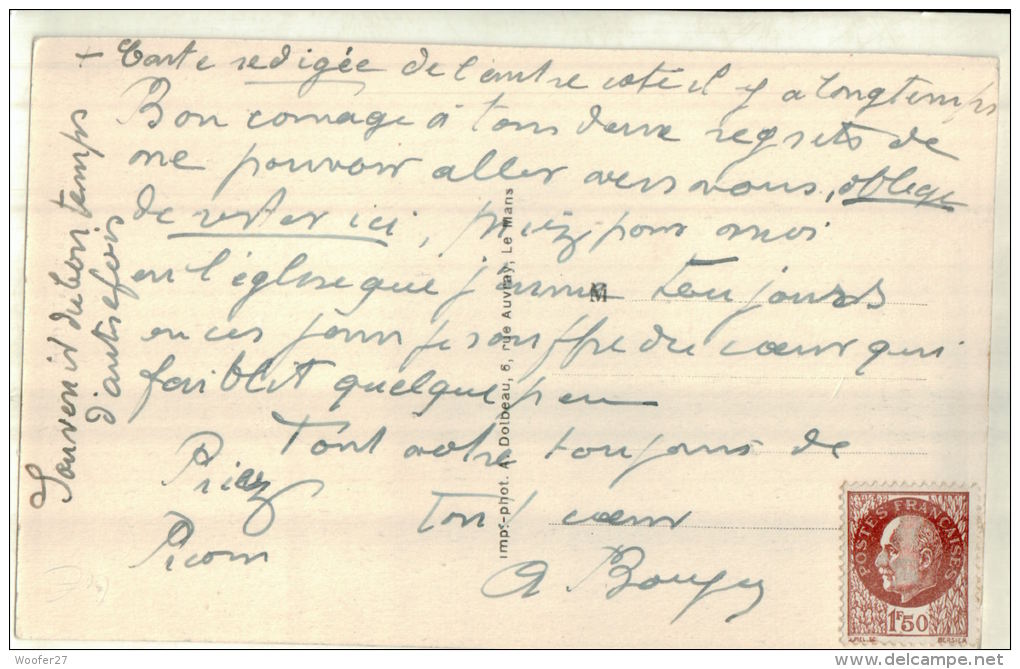 + Carte redigée de l'autre coté il y a longtemps
Bon courage à tous deux regrets de
ne pouvoir aller vers vous, obligé
de rester ici, priez pour moi
en l'église que j'aime toujours
en ces jours je souffre du cœur qui
faiblit quelque peu
Tout votre toujours de
tout cœur
Priez
A Bouy
Souvenir du bon temps
d'autrefois
M
Imp.-phot. A. Dolbeau, 6, rue Auvray, Le Mans
POSTES FRANÇAISES
1F50
BERSIER
Woofer27
delcampe.net